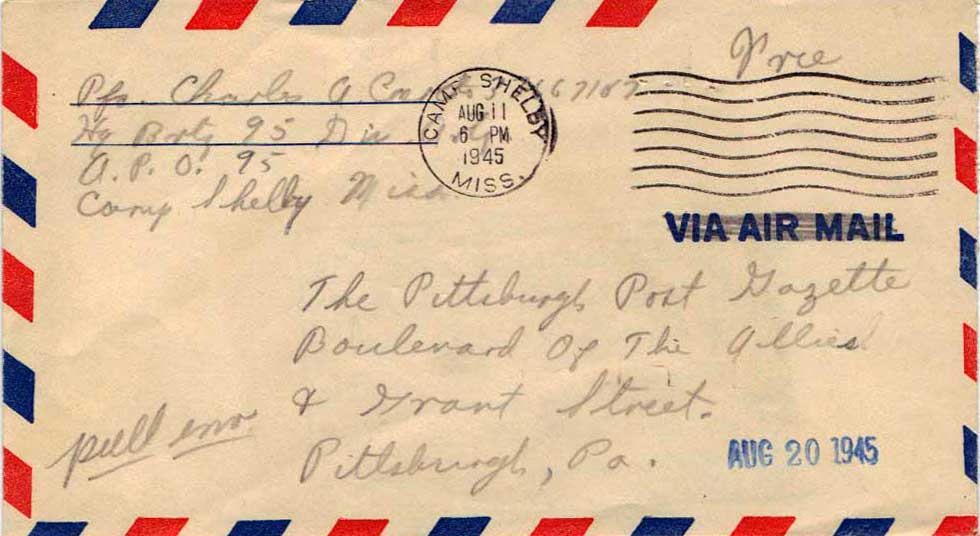 Free
Pfc. Charles A
Hq Brty 95 Div
A. P. O. 95
Camp Shelby Miss
CAMP SHELBY
AUG 11
6 PM
1945
MISS.
VIA AIR MAIL
The Pittsburgh Post Gazette
Boulevard Of The Allies
& Grant Street.
Pittsburgh, Pa.
pull env
AUG 20 1945